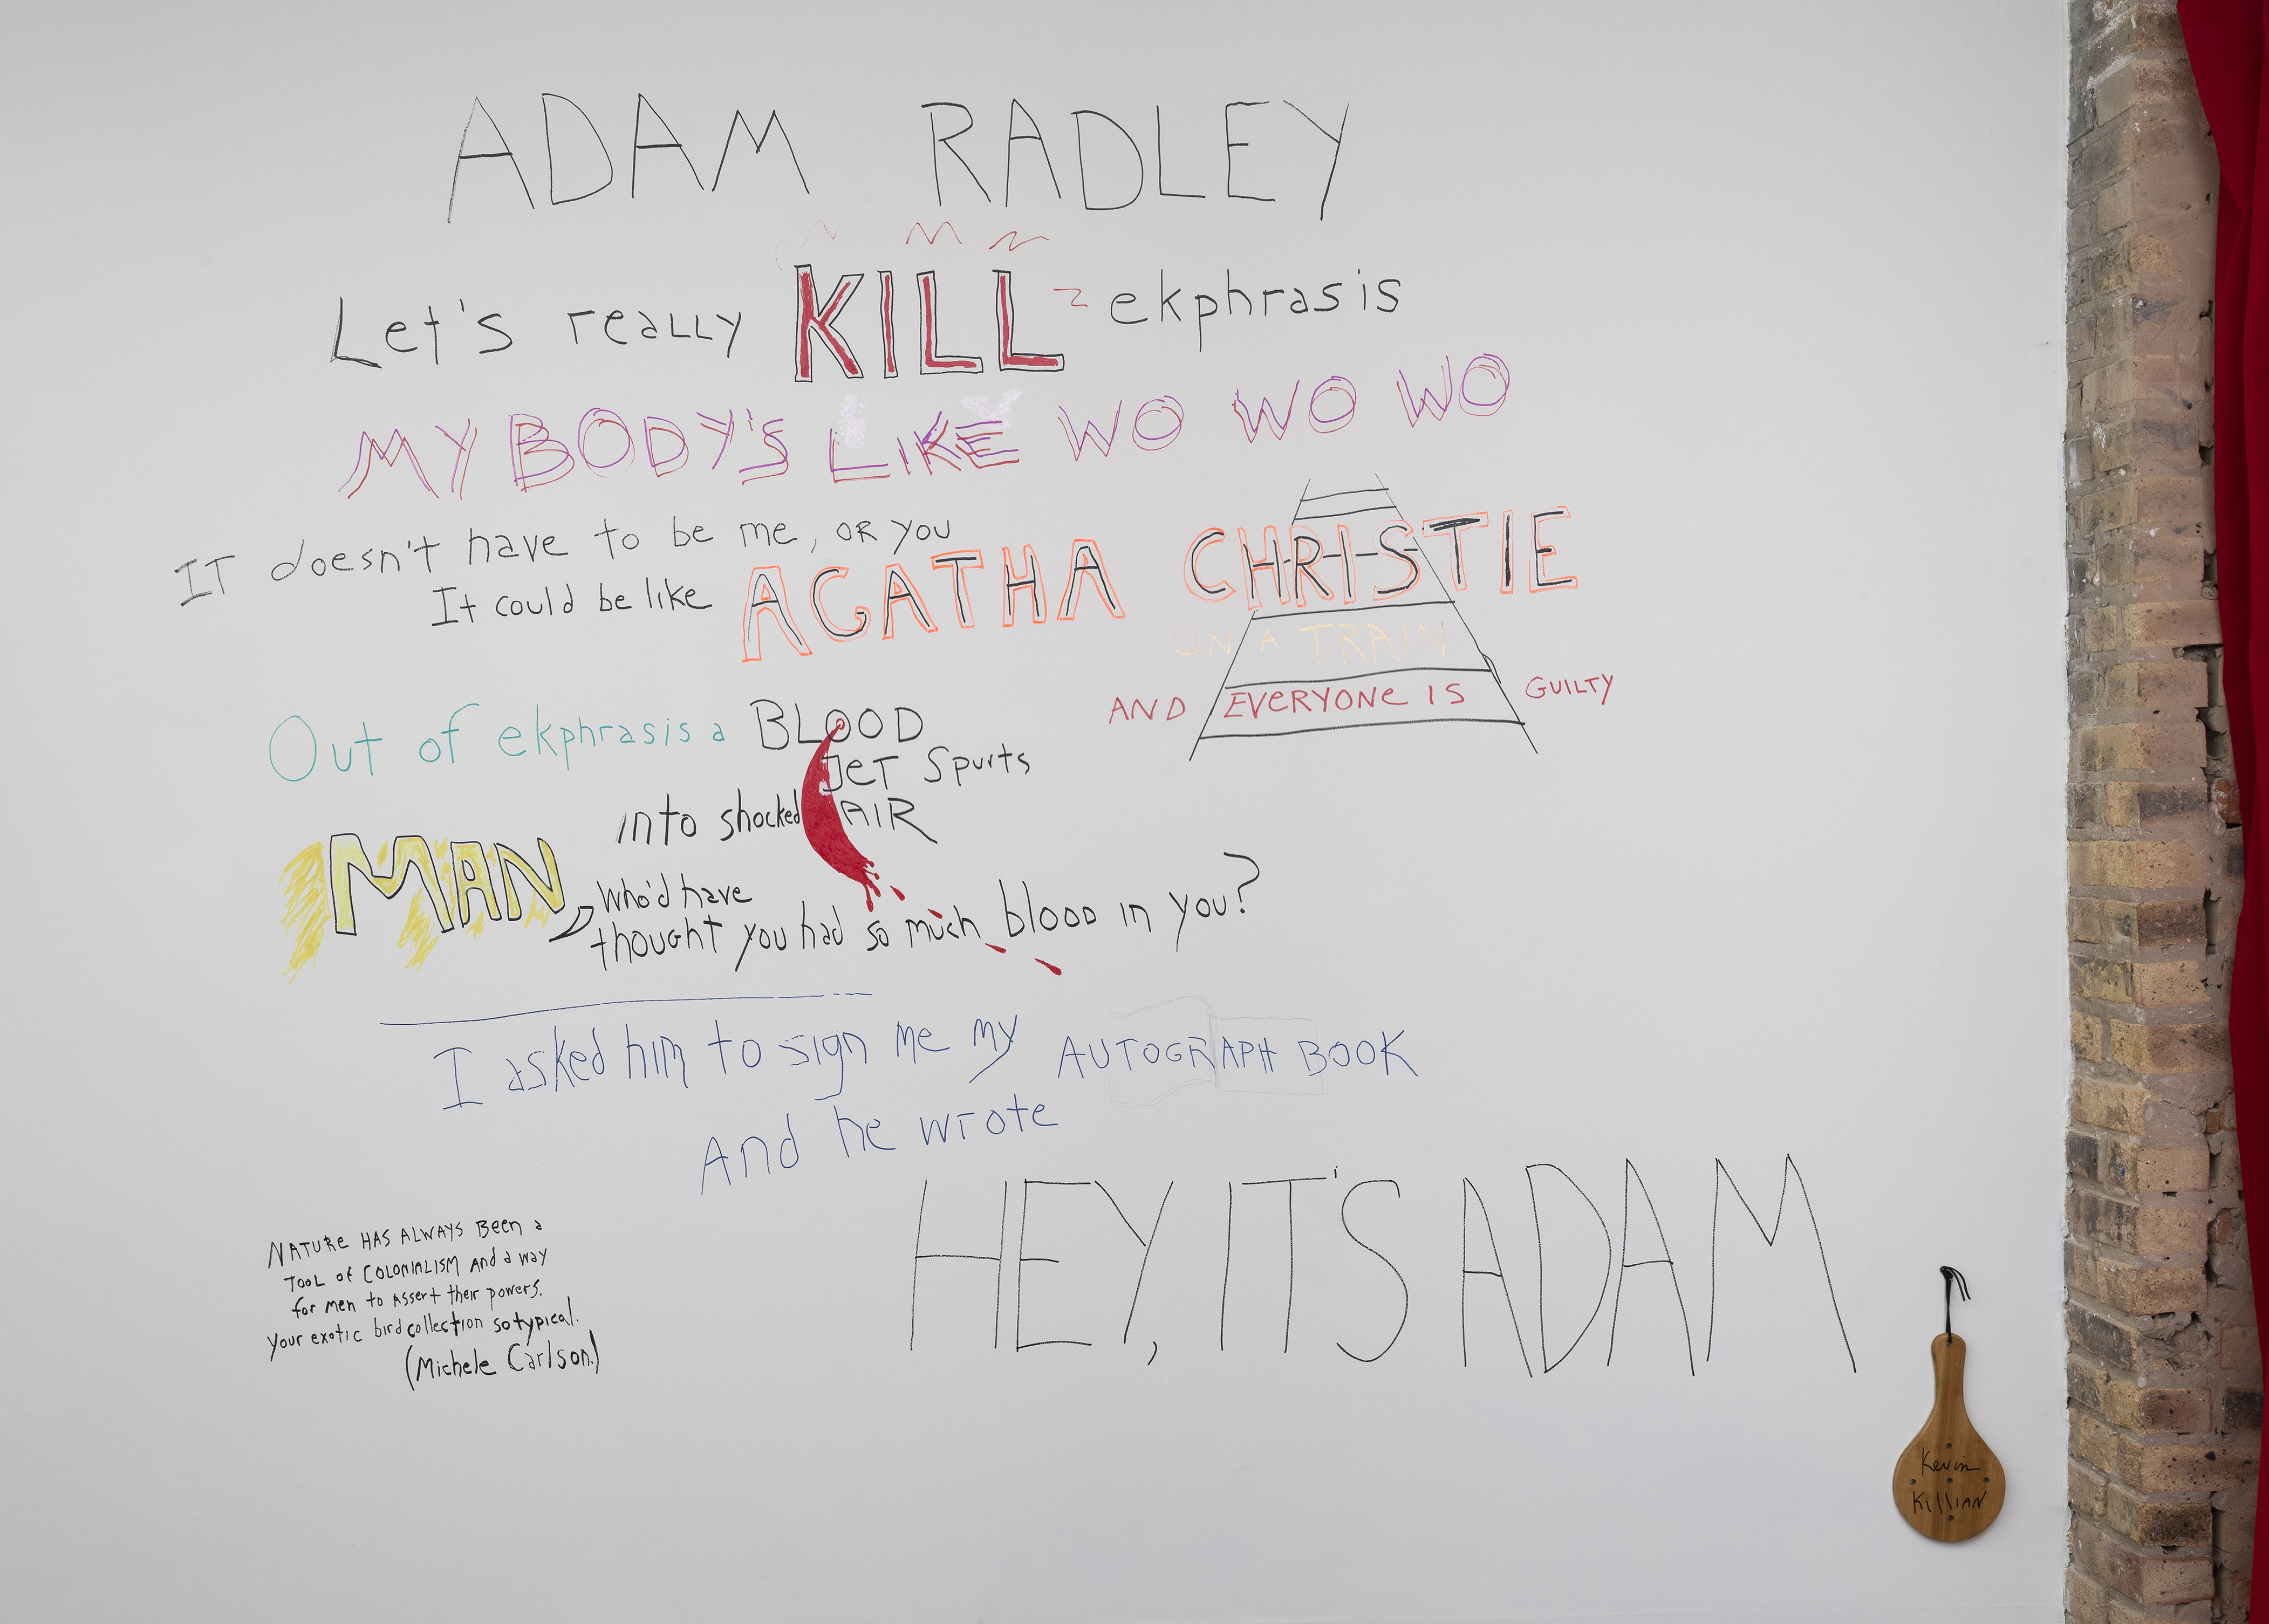 ADAM RADLEY
Let's really KILL ekphrasis
MY BODY'S LIKE WO WO WO
IT doesn't have to be me, OR YOU
It could be like AGATHA CHRISTIE
ON A TRAIN
AND EVERYONE IS GUILTY
Out of ekphrasis a BLOOD
JET Spurts
into shocked AIR
MAN, who'd have
thought you had so much blood in you?
I asked him to sign me my AUTOGRAPH BOOK
And he wrote
HEY, IT'S ADAM
NATURE HAS ALWAYS BEEN a
TOOL of COLONIALISM and a way
for men to assert their powers.
Your exotic bird collection so typical.
(Michele Carlson.)
Kevin
Killian